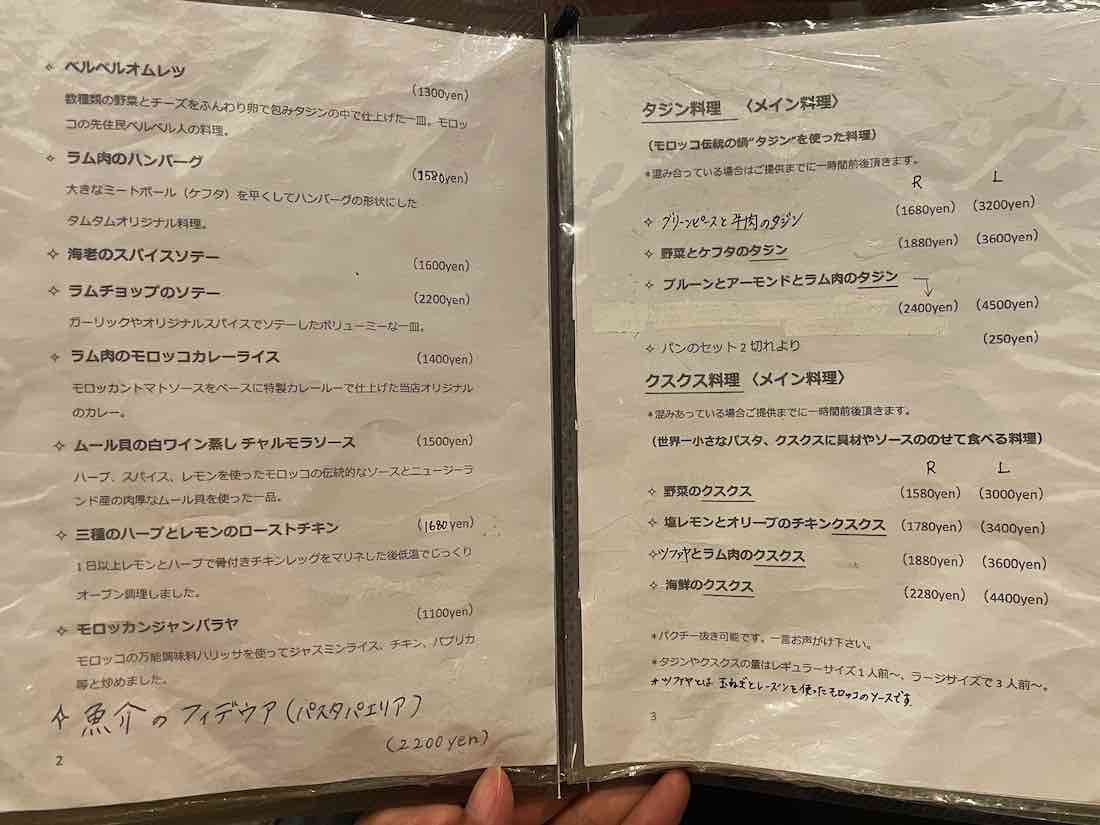 ✧ ベルベルオムレツ
(1300yen)
数種類の野菜とチーズをふんわり卵で包みタジンの中で仕上げた一皿。モロッ
コの先住民ベルベル人の料理。
✧ ラム肉のハンバーグ
(1580yen)
大きなミートボール（ケフタ）を平くしてハンバーグの形状にした
タムタムオリジナル料理。
✧ 海老のスパイスソテー
(1600yen)
✧ ラムチョップのソテー
(2200yen)
ガーリックやオリジナルスパイスでソテーしたボリューミーな一皿。
✧ ラム肉のモロッコカレーライス (1400yen)
モロッカントマトソースをベースに特製カレールーで仕上げた当店オリジナル
のカレー。
✧ ムール貝の白ワイン蒸し チャルモラソース (1500yen)
ハーブ、スパイス、レモンを使ったモロッコの伝統的なソースとニュージーラ
ンド産の肉厚なムール貝を使った一品。
✧ 三種のハーブとレモンのローストチキン (1680yen)
1日以上レモンとハーブで骨付きチキンレッグをマリネした後低温でじっくり
オーブン調理しました。
(1100yen)
✧ モロッカンジャンバラヤ
モロッコの万能調味料ハリッサを使ってジャスミンライス、チキン、パプリカ
等と炒めました。
✧ 魚介のフィデウア(パスタパエリア)
(2200yen)
2
タジン料理 〈メイン料理〉
（モロッコ伝統の鍋“タジン”を使った料理）
*混み合っている場合はご提供までに一時間前後頂きます。
R L
✧ グリーンピースと牛肉のタジン (1680yen) (3200yen)
✧ 野菜とケフタのタジン (1880yen) (3600yen)
✧ プルーンとアーモンドとラム肉のタジン
(2400yen) (4500yen)
✧ パンのセット2切れより (250yen)
クスクス料理 〈メイン料理〉
*混みあっている場合ご提供までに一時間前後頂きます。
（世界一小さなパスタ、クスクスに具材やソースののせて食べる料理）
R L
✧ 野菜のクスクス (1580yen) (3000yen)
✧ 塩レモンとオリーブのチキンクスクス (1780yen) (3400yen)
✧ツファヤとラム肉のクスクス (1880yen) (3600yen)
✧ 海鮮のクスクス (2280yen) (4400yen)
*パクチー抜き可能です。一言お声がけ下さい。
*タジンやクスクスの量はレギュラーサイズ1人前～、ラージサイズで3人前～。
*ツファヤとは 玉ねぎとレーズンを使ったモロッコのソースです。
3